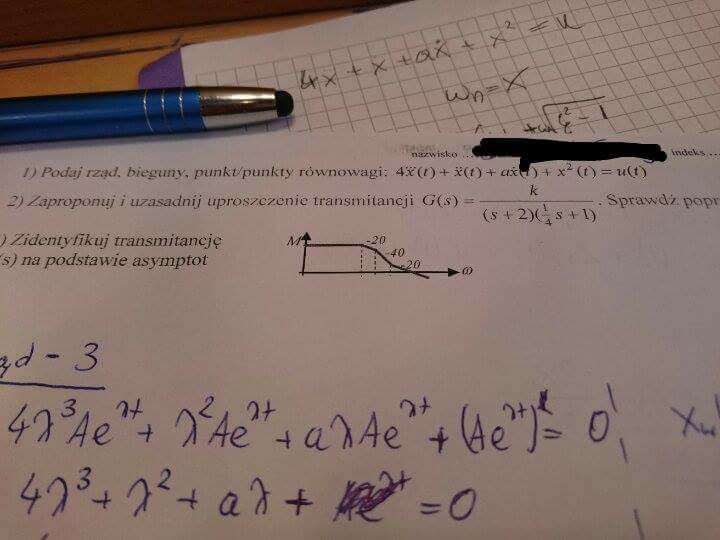 4x + x + aẋ + x² = u
ωn = x
ξ² - 1
nazwisko ... indeks ...
1) Podaj rząd, bieguny, punkt/punkty równowagi: 4x⃛(t) + ẍ(t) + aẋ(t) + x²(t) = u(t)
2) Zaproponuj i uzasadnij uproszczenie transmitancji G(s) = k / ((s + 2)(¼ s + 1)) . Sprawdź popr
) Zidentyfikuj transmitancję
(s) na podstawie asymptot
M -20 -40 -20 ω
ąd - 3
4λ³Ae^λt + λ²Ae^λt + aλAe^λt + (Ae^λt)² = 0,
4λ³ + λ² + aλ + = 0